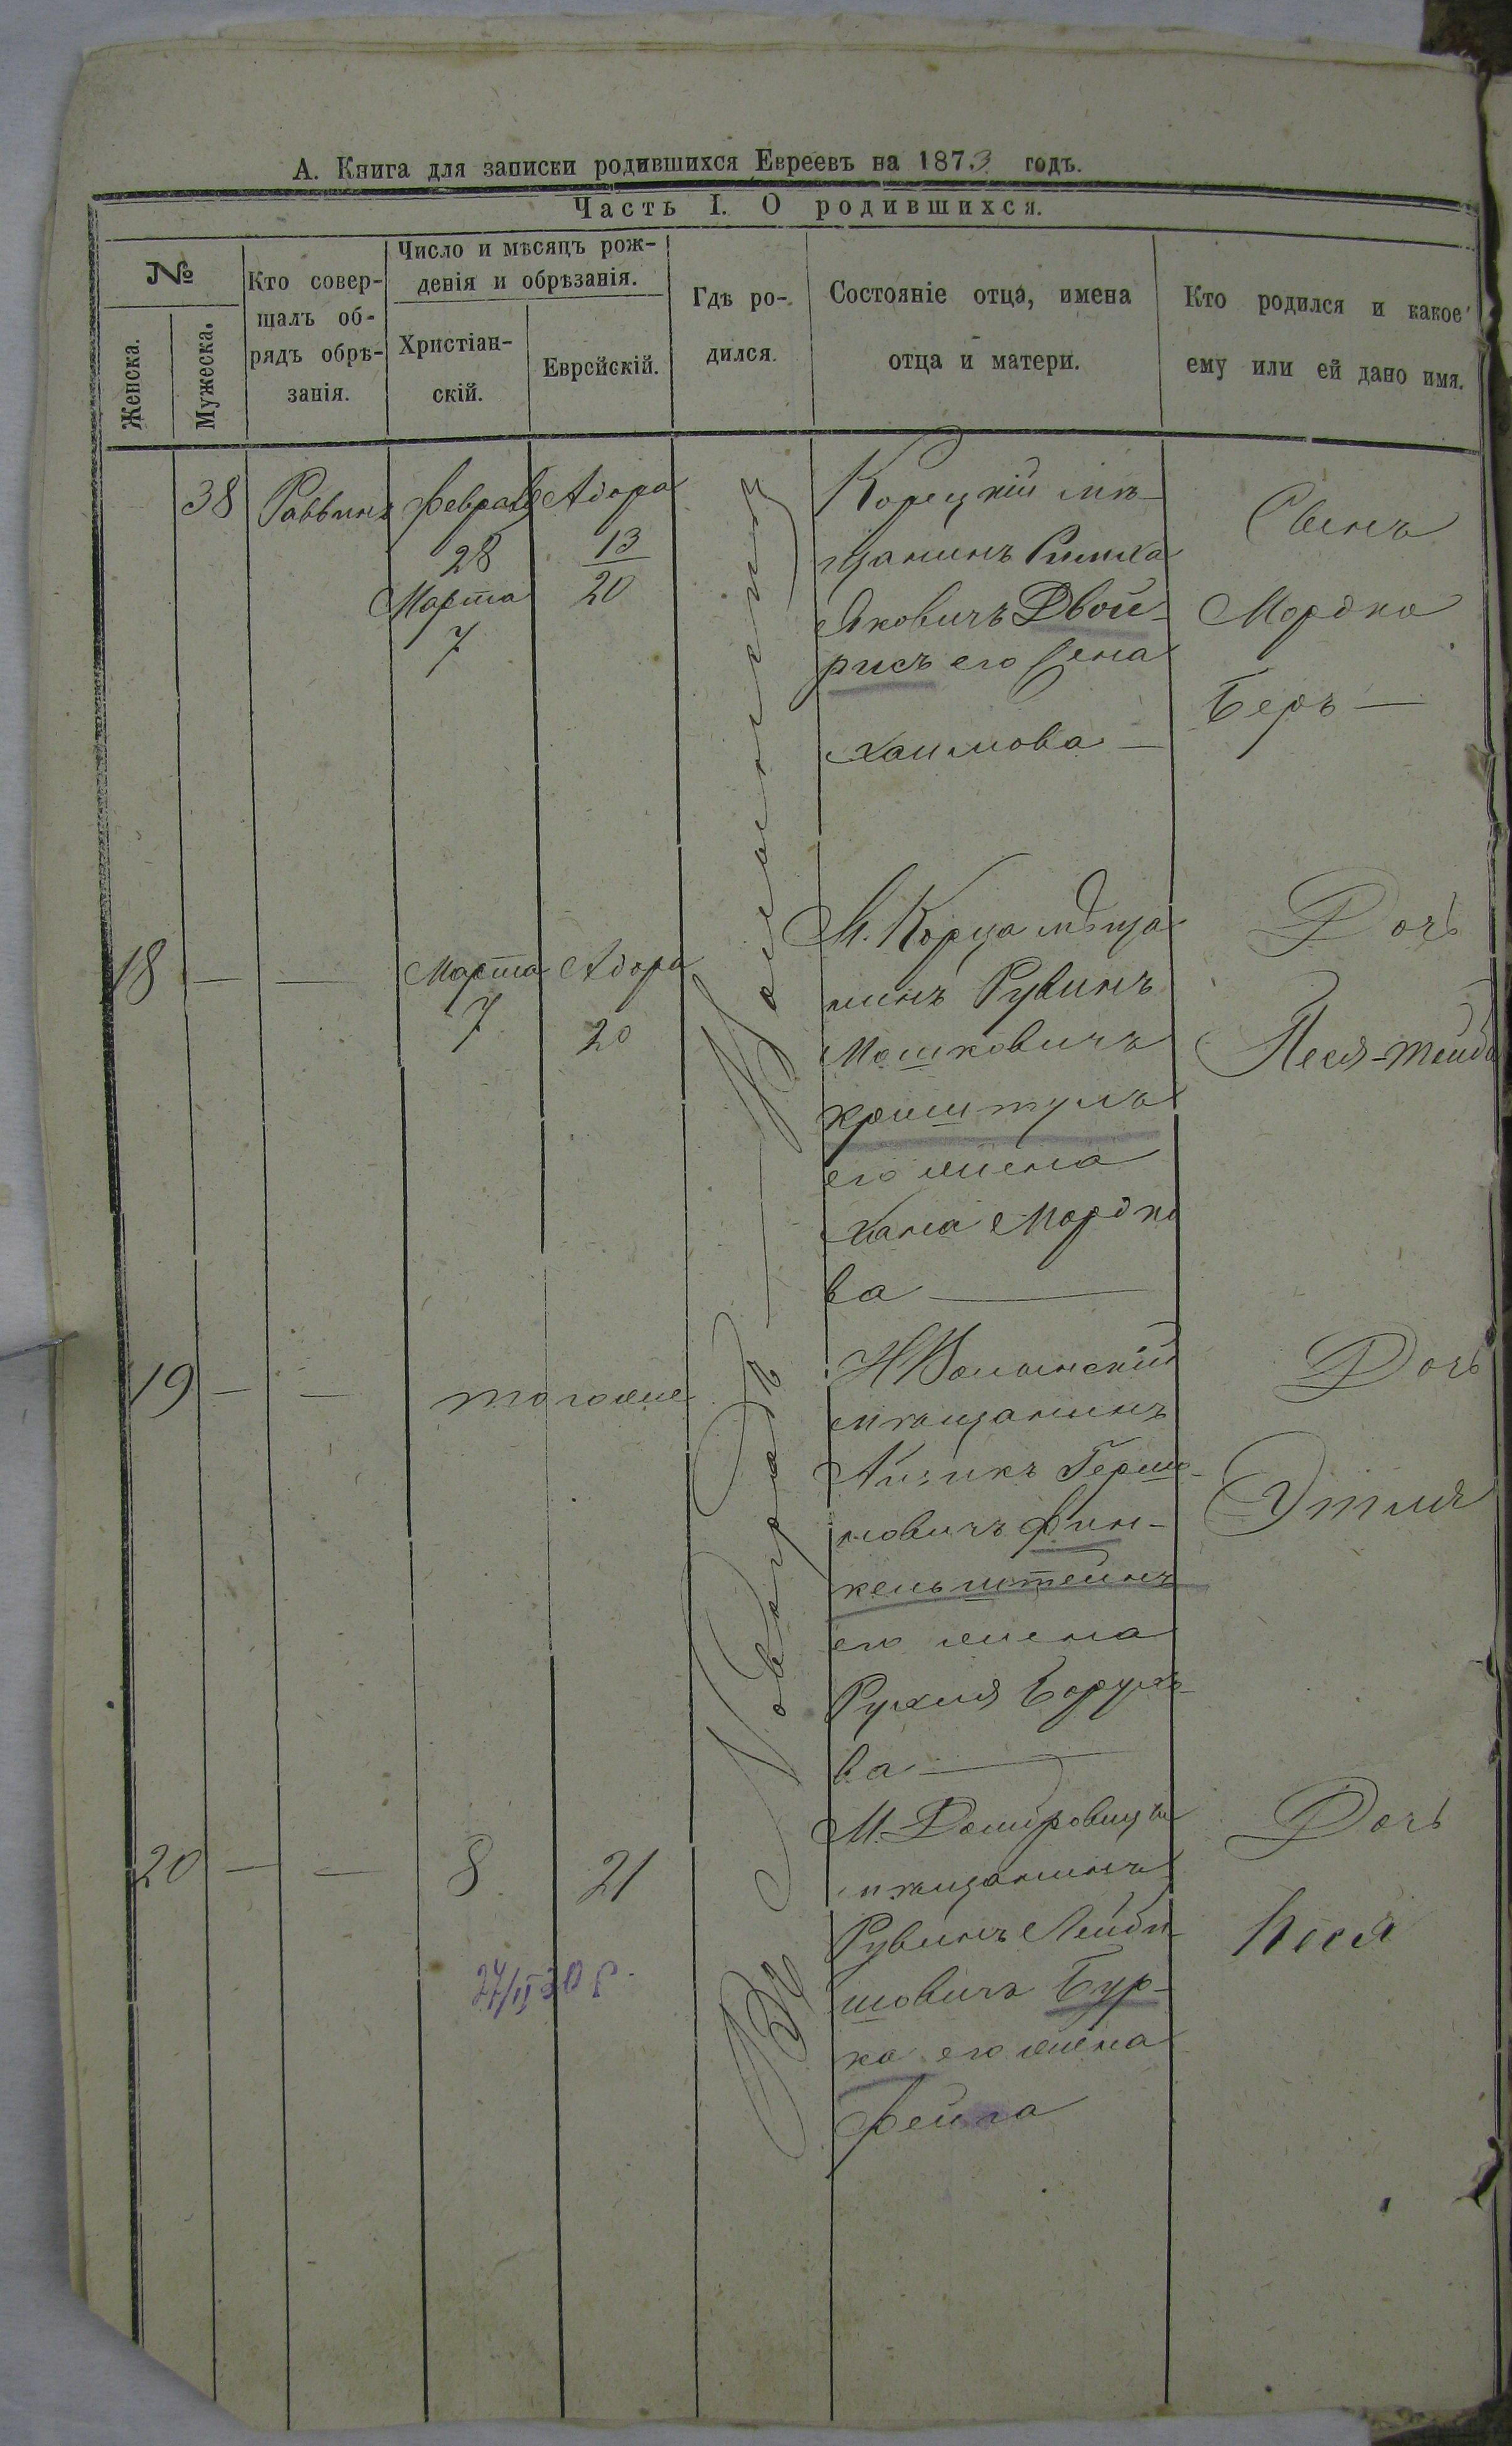 А. Книга для записки родившихся Евреевъ на 1873 годъ.
Часть I. О родившихся.
№
Женска.
Мужеска.
Кто совер-
щалъ об-
рядъ обрѣ-
занія.
Число и мѣсяцъ рож-
денія и обрѣзанія.
Христіан-
скій.
Еврейскій.
Гдѣ ро-
дился.
Состояніе отца, имена
отца и матери.
Кто родился и какое
ему или ей дано имя.
Новоградѣ — Волынскѣ
38 Раввинъ Февраля Адора
28 13
Марта 20
7
Корецкій мѣ-
щанинъ
Яковичъ Двой-
рисъ его жена
Хаимова —
Сынъ
Мордко
Беръ —
18 — — Марта Адора
7 20
М. Корца мѣща
нинъ Рувинъ
Мошковичъ
Криштулъ
его жена
Хана Мордко
ва —
Дочь
Песя-
19 — — тогоже
НВолынский
мѣщанинъ
Айзикъ Герш-
ковичъ Фин-
кельштейнъ
его жена
Рухля Борухо-
ва —
Дочь
Этля
20 — — 8 21
27/II 30 р.
М.
мѣщанинъ
Рувинъ Лейби-
шовичъ Бур-
ко его жена
Фейга
Дочь
Песя